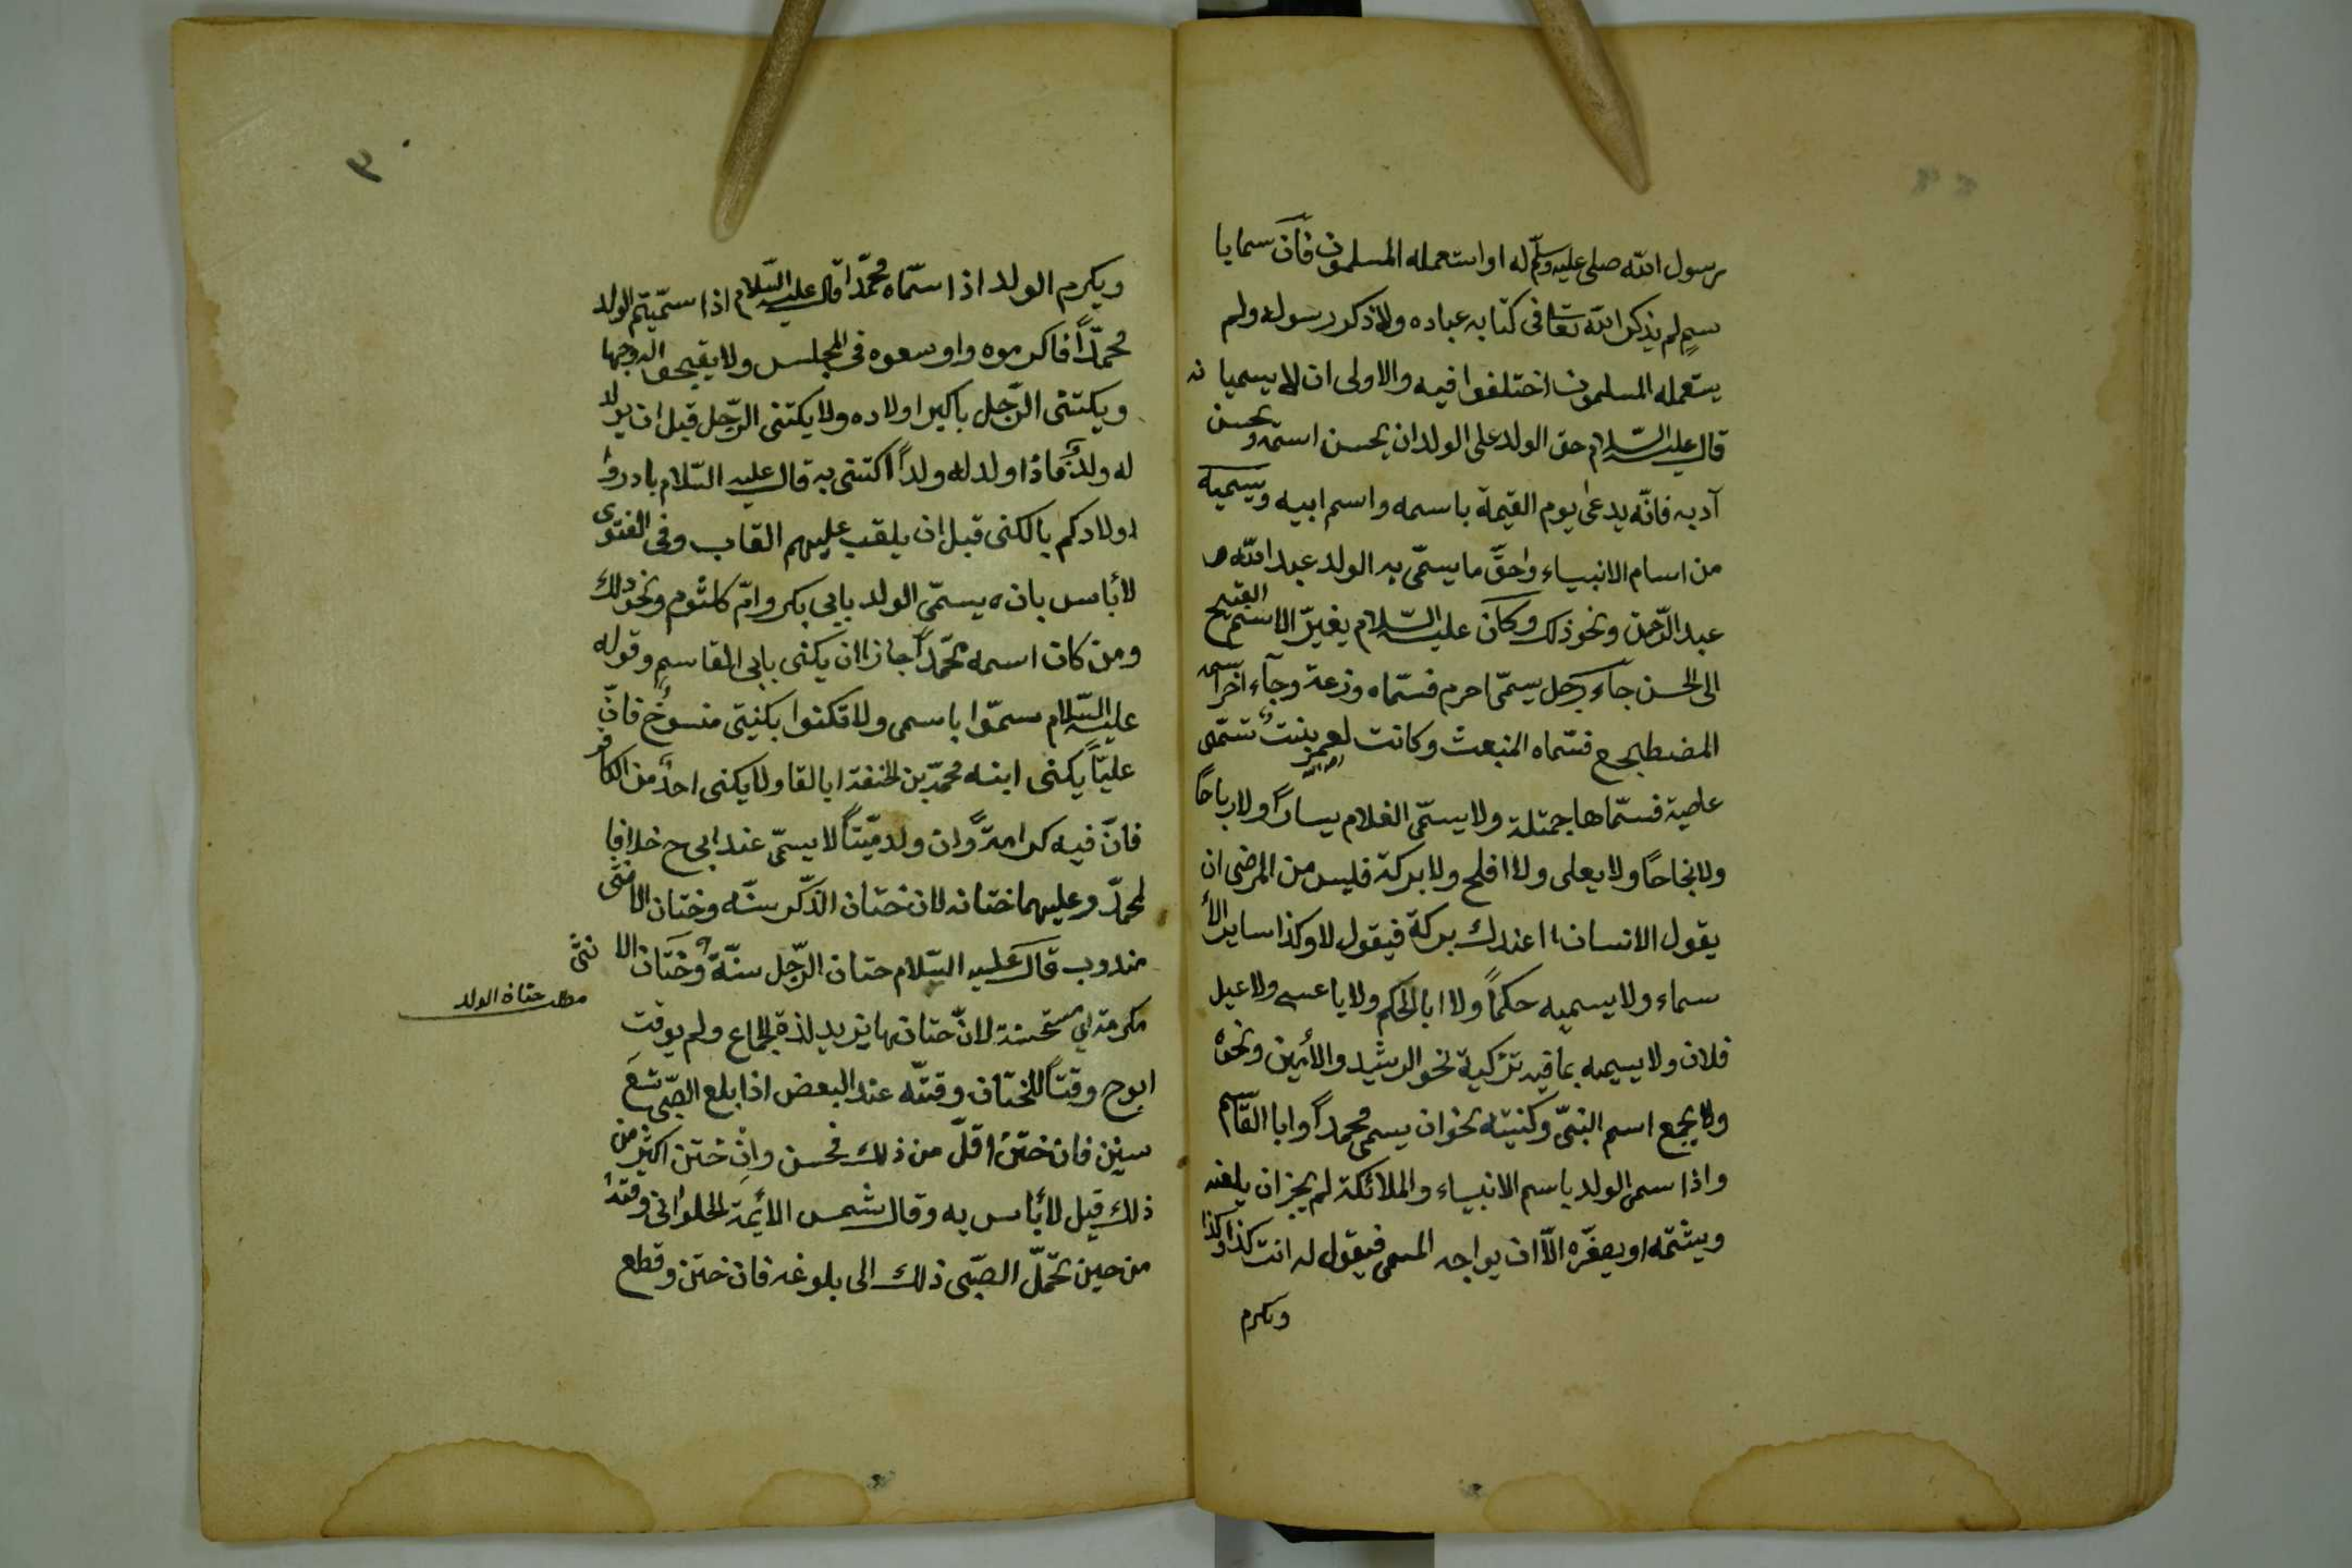 رسول الله صلى عليه وسلم له او استعمله المسلمون فان سمايا
سم لم يذكر الله تعا فى كتابه عباده ولا ذكر رسوله ولم
يستعمله المسلمون اختلفوا فيه والاولى ان لا يسميا نه
قال عليه السلام حق الولد على الولد ان يحسن اسمه ويحسن
آدبه فانه يدعى يوم القيمة باسمه واسم ابيه ويسميه
من اسام الانبياء واحق ما يسمى به الولد عبد الله و
عبد الرحمن ونحو ذلك وكان عليه السلام يغير الاسم القبيح
الى الحسن جاء رجل يسمى احرم فسماه وزعة وجاء آخر اسمه
المضطبحع فسماه المنبعث وكانت لعمر بنت تسمى
عاصية فسماها جمتلة ولا يسمى الغلام يسارا ولا رباحا
ولا نجاحا ولا يعلى ولا افلح ولا بركة فليس من المرضى ان
يقول الانسان اعندك بركة فيقول لا وكذا ساير الأ
سماء ولا يسميه حكما ولا ابا الحكم ولا ياعسى ولا عبد
فلان ولا يسميه بما فيه تزكية نحو الرشيد والأمين ونحوه
ولا يجمع اسم النبى وكنيته نحوان يسمى محمدا وابا القاسم
واذا سمى الولد باسم الانبياء والملائكة لم يجز ان يلعنه
ويشتمه او يصغره الا ان يواجه المسمى فيقول له انت كذا وكذا
ويكرم
ويكرم الولد اذا سماه محمدا قال عليه السلام اذا سميتم الولد
محمدا فاكرموه واوسعوه فى المجلس ولا يقبح له وجها
ويكتنى الرجل باكبر اولاده ولا يكتنى الرجل قبل ان يولد
له ولد فاذا ولد له ولدا اكتنى به قال عليه السلام بادروا
اولادكم بالكنى قبل ان يلقب عليهم القاب وفى الفتوى
لا بأس بان يسمى الولد بابى بكر وام كلثوم ونحو ذلك
ومن كان اسمه محمدا جاز ان يكنى بابى القاسم وقوله
عليه السلام سموا باسمى ولا تكنوا بكنيتى منسوخ فان
عليا يكنى ابنه محمد بن الحنفة ابا القا ولا يكنى احد من الكافر
فان فيه كرامة وان ولد ميتا لا يسمى عند ابى ح خلافا
لمحمد وعليهما ختانه لان ختان الذكر سنه وختان الانثى
مندوب قال عليه السلام ختان الرجل سنة وختان الا نثى
مكرمة اى مستحسنة لان ختانها تزيد لذة الجماع ولم يوقت
مطلب ختان الولد
ابو ح وقتا للختان وقته عند البعض اذا بلع الصبى تسع
سنين فان ختن اقل من ذلك فحسن وان ختن اكثر من
ذلك قيل لا بأس به وقال شمس الأئمة الحلوانى وقته
من حين تحمل الصبى ذلك الى بلوغه فان ختن وقطع